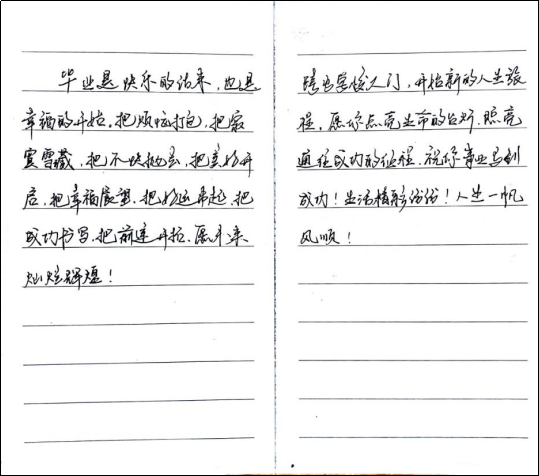 毕业是快乐的结束，也是
幸福的开始。把烦恼打包，把寂
寞雪藏，把不快抛去，把美好开
启，把幸福展望，把好运带起，把
成功书写，把前途开拓，愿未来
灿烂辉煌！
踏出学校大门，开始新的人生旅
程，愿你点亮生命的台灯，照亮
通往成功的征程，祝你事业马到
成功！生活精彩纷纷！人生一帆
风顺！